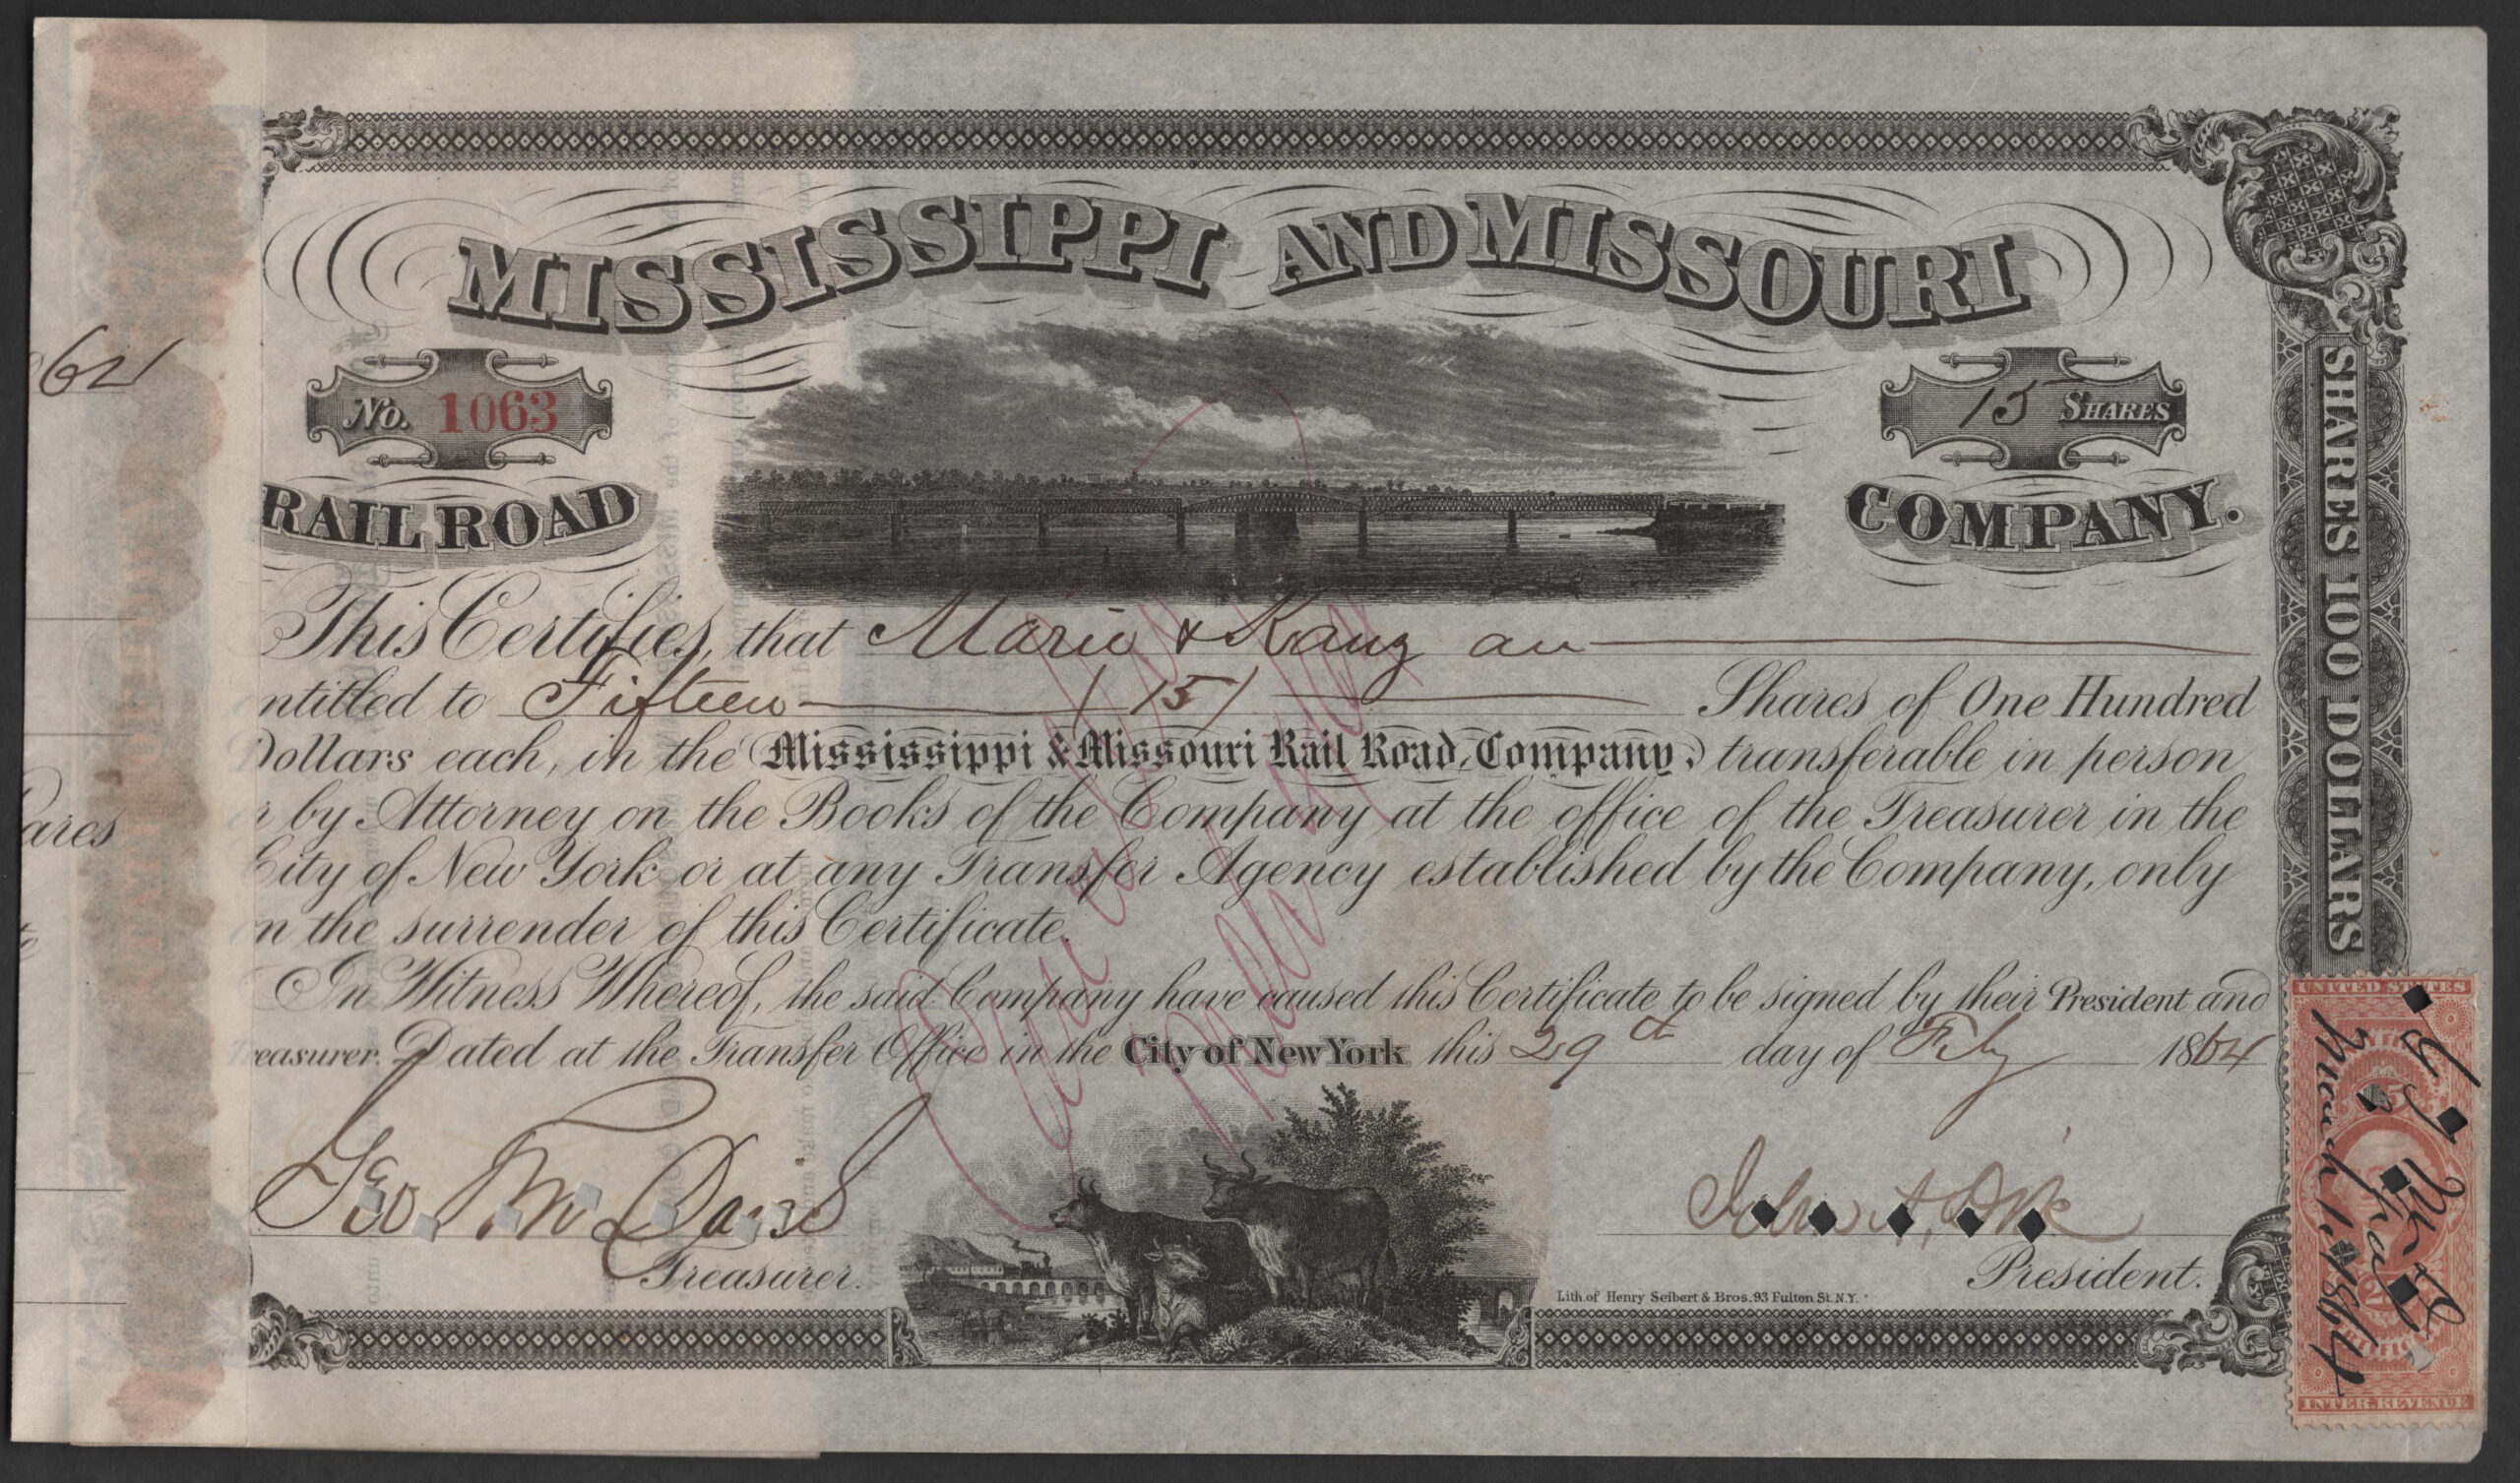 MISSISSIPPI AND MISSOURI
62
No. 1063
15 SHARES
RAIL ROAD
COMPANY.
SHARES 100 DOLLARS
This Certifies, that Marie & Kanz are
ntitled to Fifteen (15) Shares of One Hundred
Dollars each, in the Mississippi & Missouri Rail Road, Company, transferable in person
r by Attorney on the Books of the Company at the office of the Treasurer in the
City of New York or at any Transfer Agency established by the Company, only
on the surrender of this Certificate.
In Witness Whereof, the said Company have caused this Certificate to be signed by their President and
Treasurer. Dated at the Transfer Office in the City of New York this 29th day of Feby 1864
Geo. M. Davis
Treasurer.
John A. Dix
President.
Lith. of Henry Seibert & Bros. 93 Fulton St. N.Y.
UNITED STATES
25
March 1. 1864
INTER. REVENUE
ares
Cancelled